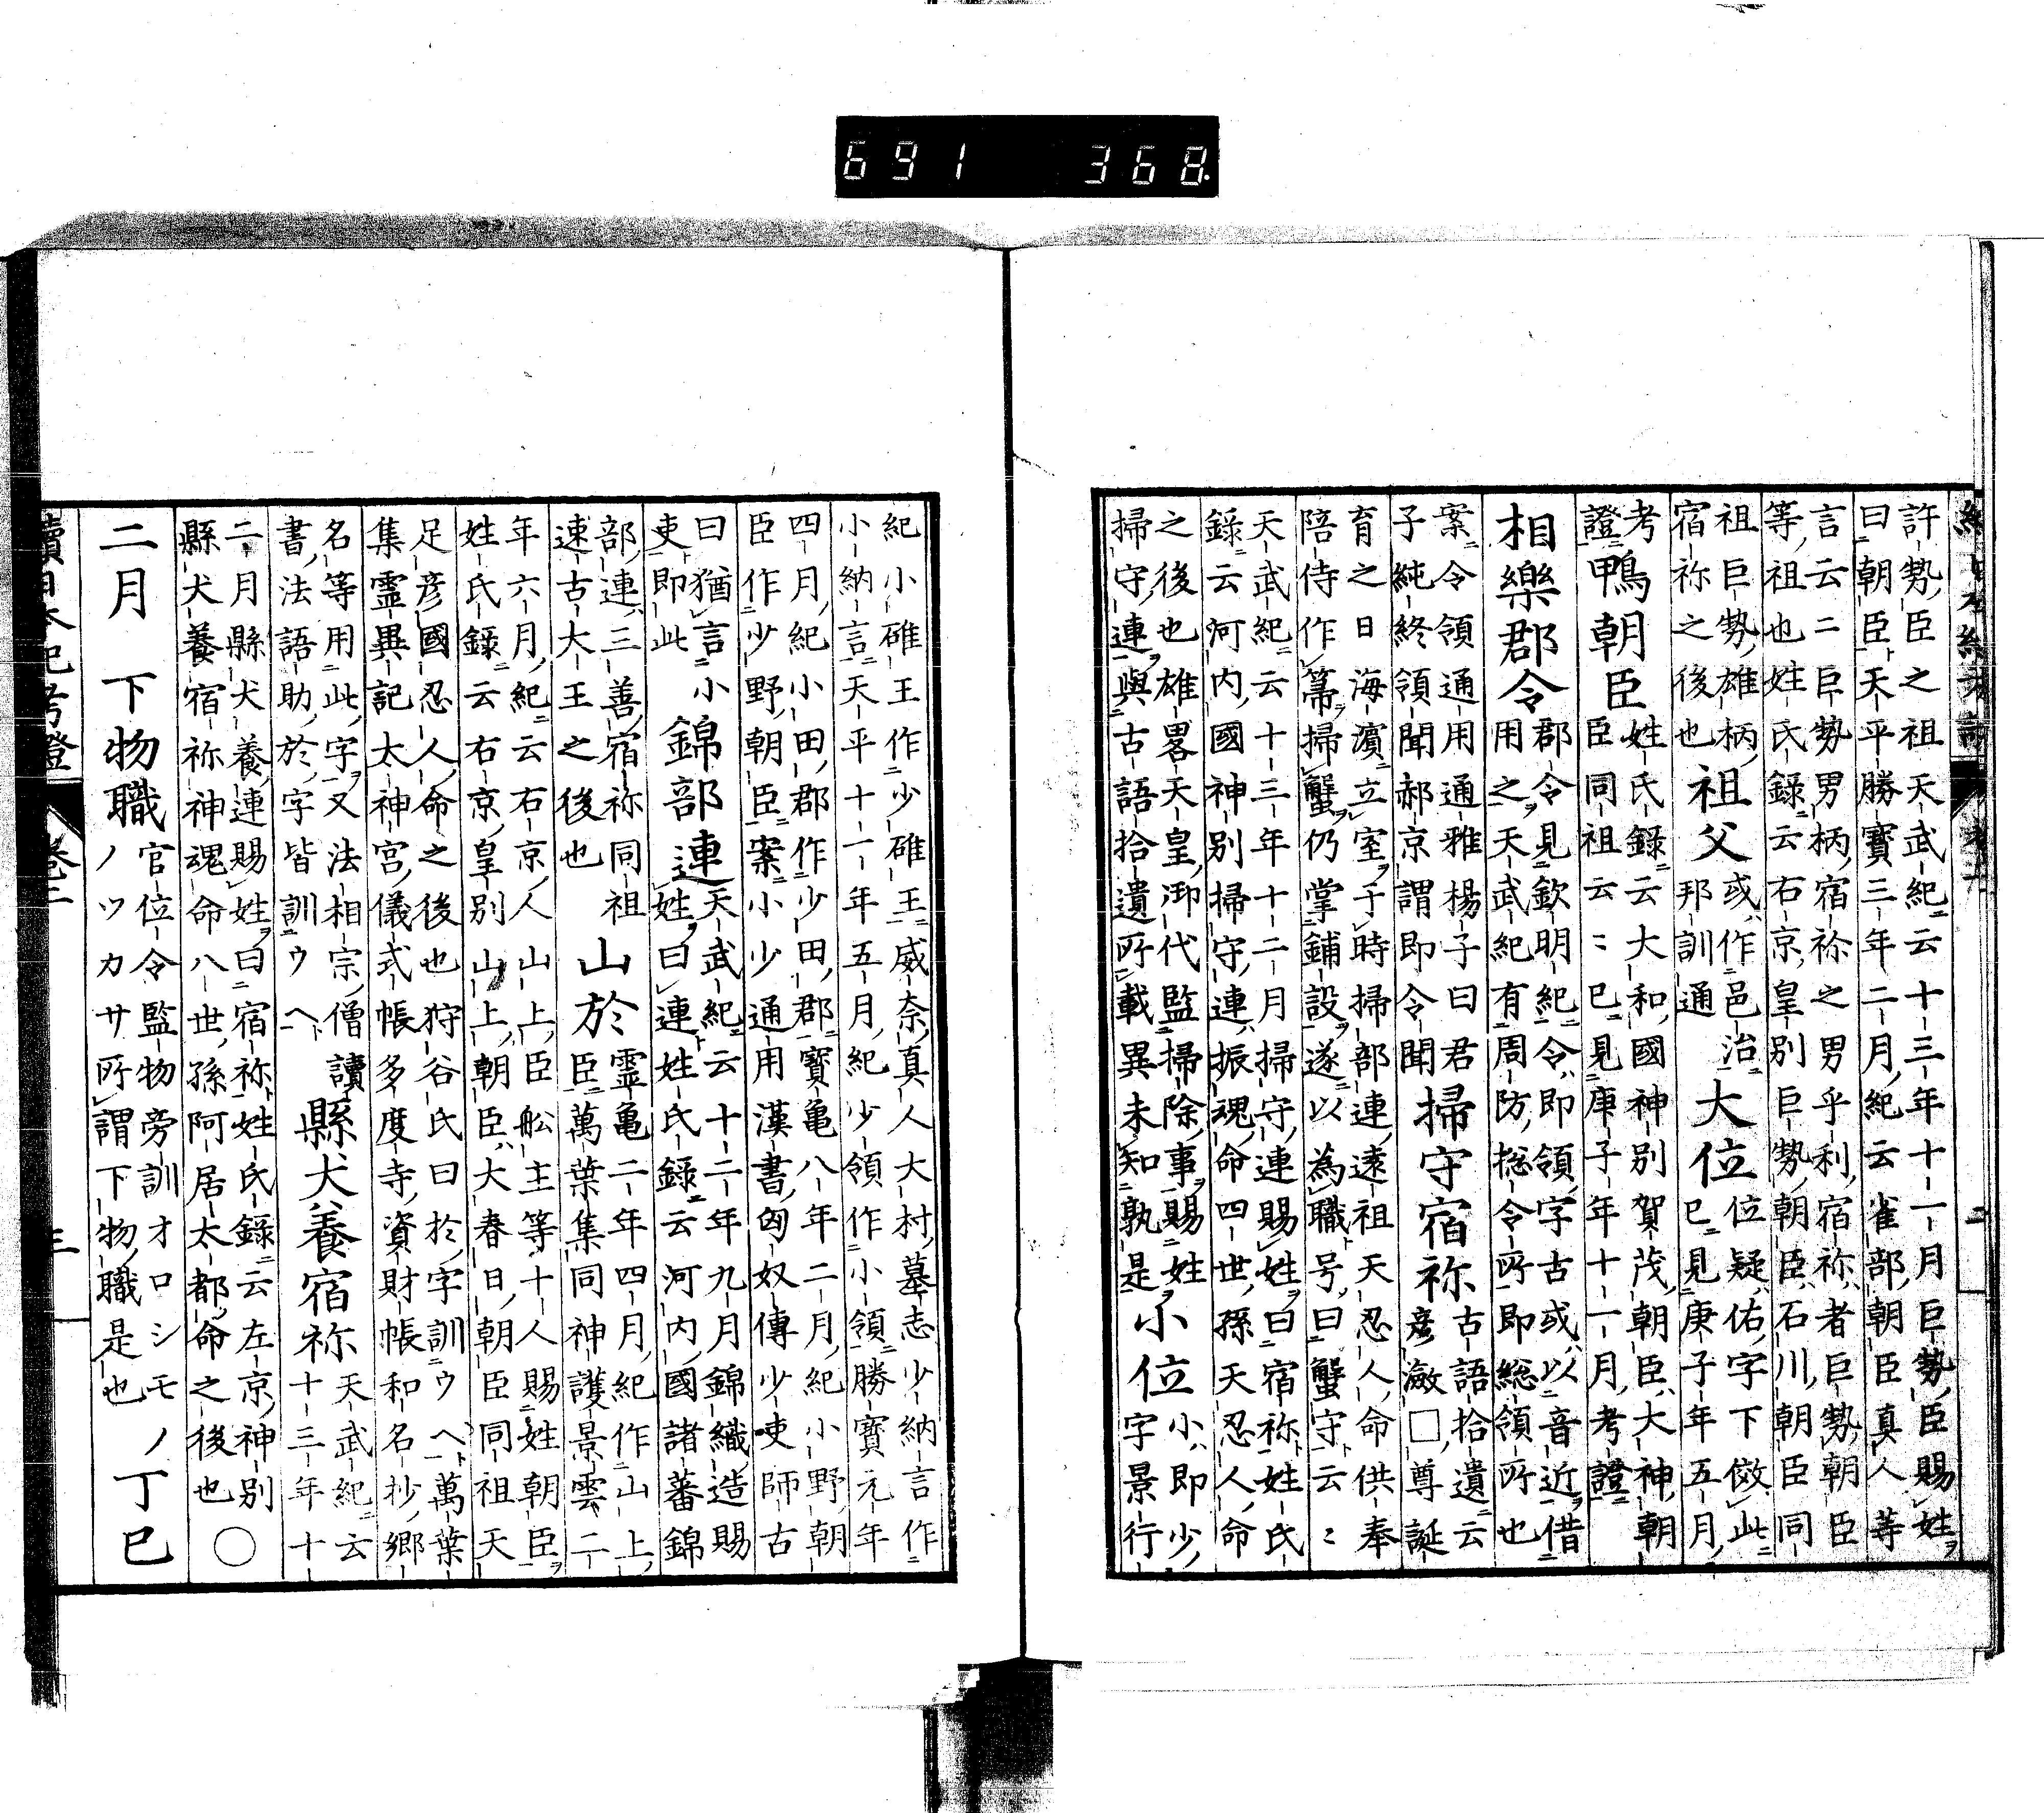 691 368
許勢臣之祖天武紀云十三年十一月巨勢臣賜姓
曰朝臣天平勝寶三年二月紀云雀部朝臣真人等
言云二巨勢男柄宿祢之男乎利宿祢者巨勢朝臣
等祖也姓氏録云右京皇別巨勢朝臣石川朝臣同
祖巨勢雄柄
宿祢之後也
祖父
或作邑治
邦訓通
大位
位疑佑字下傚此
已見庚子年五月
考
證
鴨朝臣
姓氏録云大和國神別賀茂朝臣大神朝
臣同祖云〻已見庚子年十一月考證
相樂郡令
郡令見欽明紀令即領字古或以音近借
用之天武紀有周防捴令所即総領所也
案令領通用通雅楊子曰君
子純終領聞郝京謂即令聞
掃守宿祢
古語拾遺云
彦瀲□尊誕
育之日海濱立室于時掃部連遠祖天忍人命供奉
陪侍作箒掃蟹仍掌鋪設遂以為職号曰蟹守云〻
天武紀云十三年十二月掃守連賜姓曰宿祢姓氏
錄云河内國神別掃守連振魂命四世孫天忍人命
之後也雄畧天皇御代監掃除事賜姓
掃守連與古語拾遺所載異未知孰是
小位
小即少
字景行
紀小碓王作少碓王威奈真人大村墓志少納言作
小納言天平十一年五月紀少領作小領勝寶元年
四月紀小田郡作少田郡寶亀八年二月紀小野朝
臣作少野朝臣案小少通用漢書匈奴傳少吏師古
曰猶言小
吏即此
錦部連
天武紀云十二年九月錦織造賜
姓曰連姓氏録云河内國諸蕃錦
部連三善宿祢同祖
速古大王之後也
山於
靈亀二年四月紀作山上
臣萬葉集同神護景雲二
年六月紀云右京人山上臣舩主等十人賜姓朝臣
姓氏錄云右京皇別山上朝臣大春日朝臣同祖天
足彦國忍人命之後也狩谷氏曰於字訓ウヘ萬葉
集霊異記太神宮儀式帳多度寺資財帳和名抄郷
名等用此字又法相宗僧讀
書法語助於字皆訓ウヘ
縣犬養宿祢
天武紀云
十三年十
二月縣犬養連賜姓曰宿祢姓氏録云左京神別
縣犬養宿祢神魂命八世孫阿居太都命之後也
○
二月
下物職
官位令監物旁訓オロシモノ
ノツカサ所謂下物職是也
丁巳
續日本紀考證
卷二
三